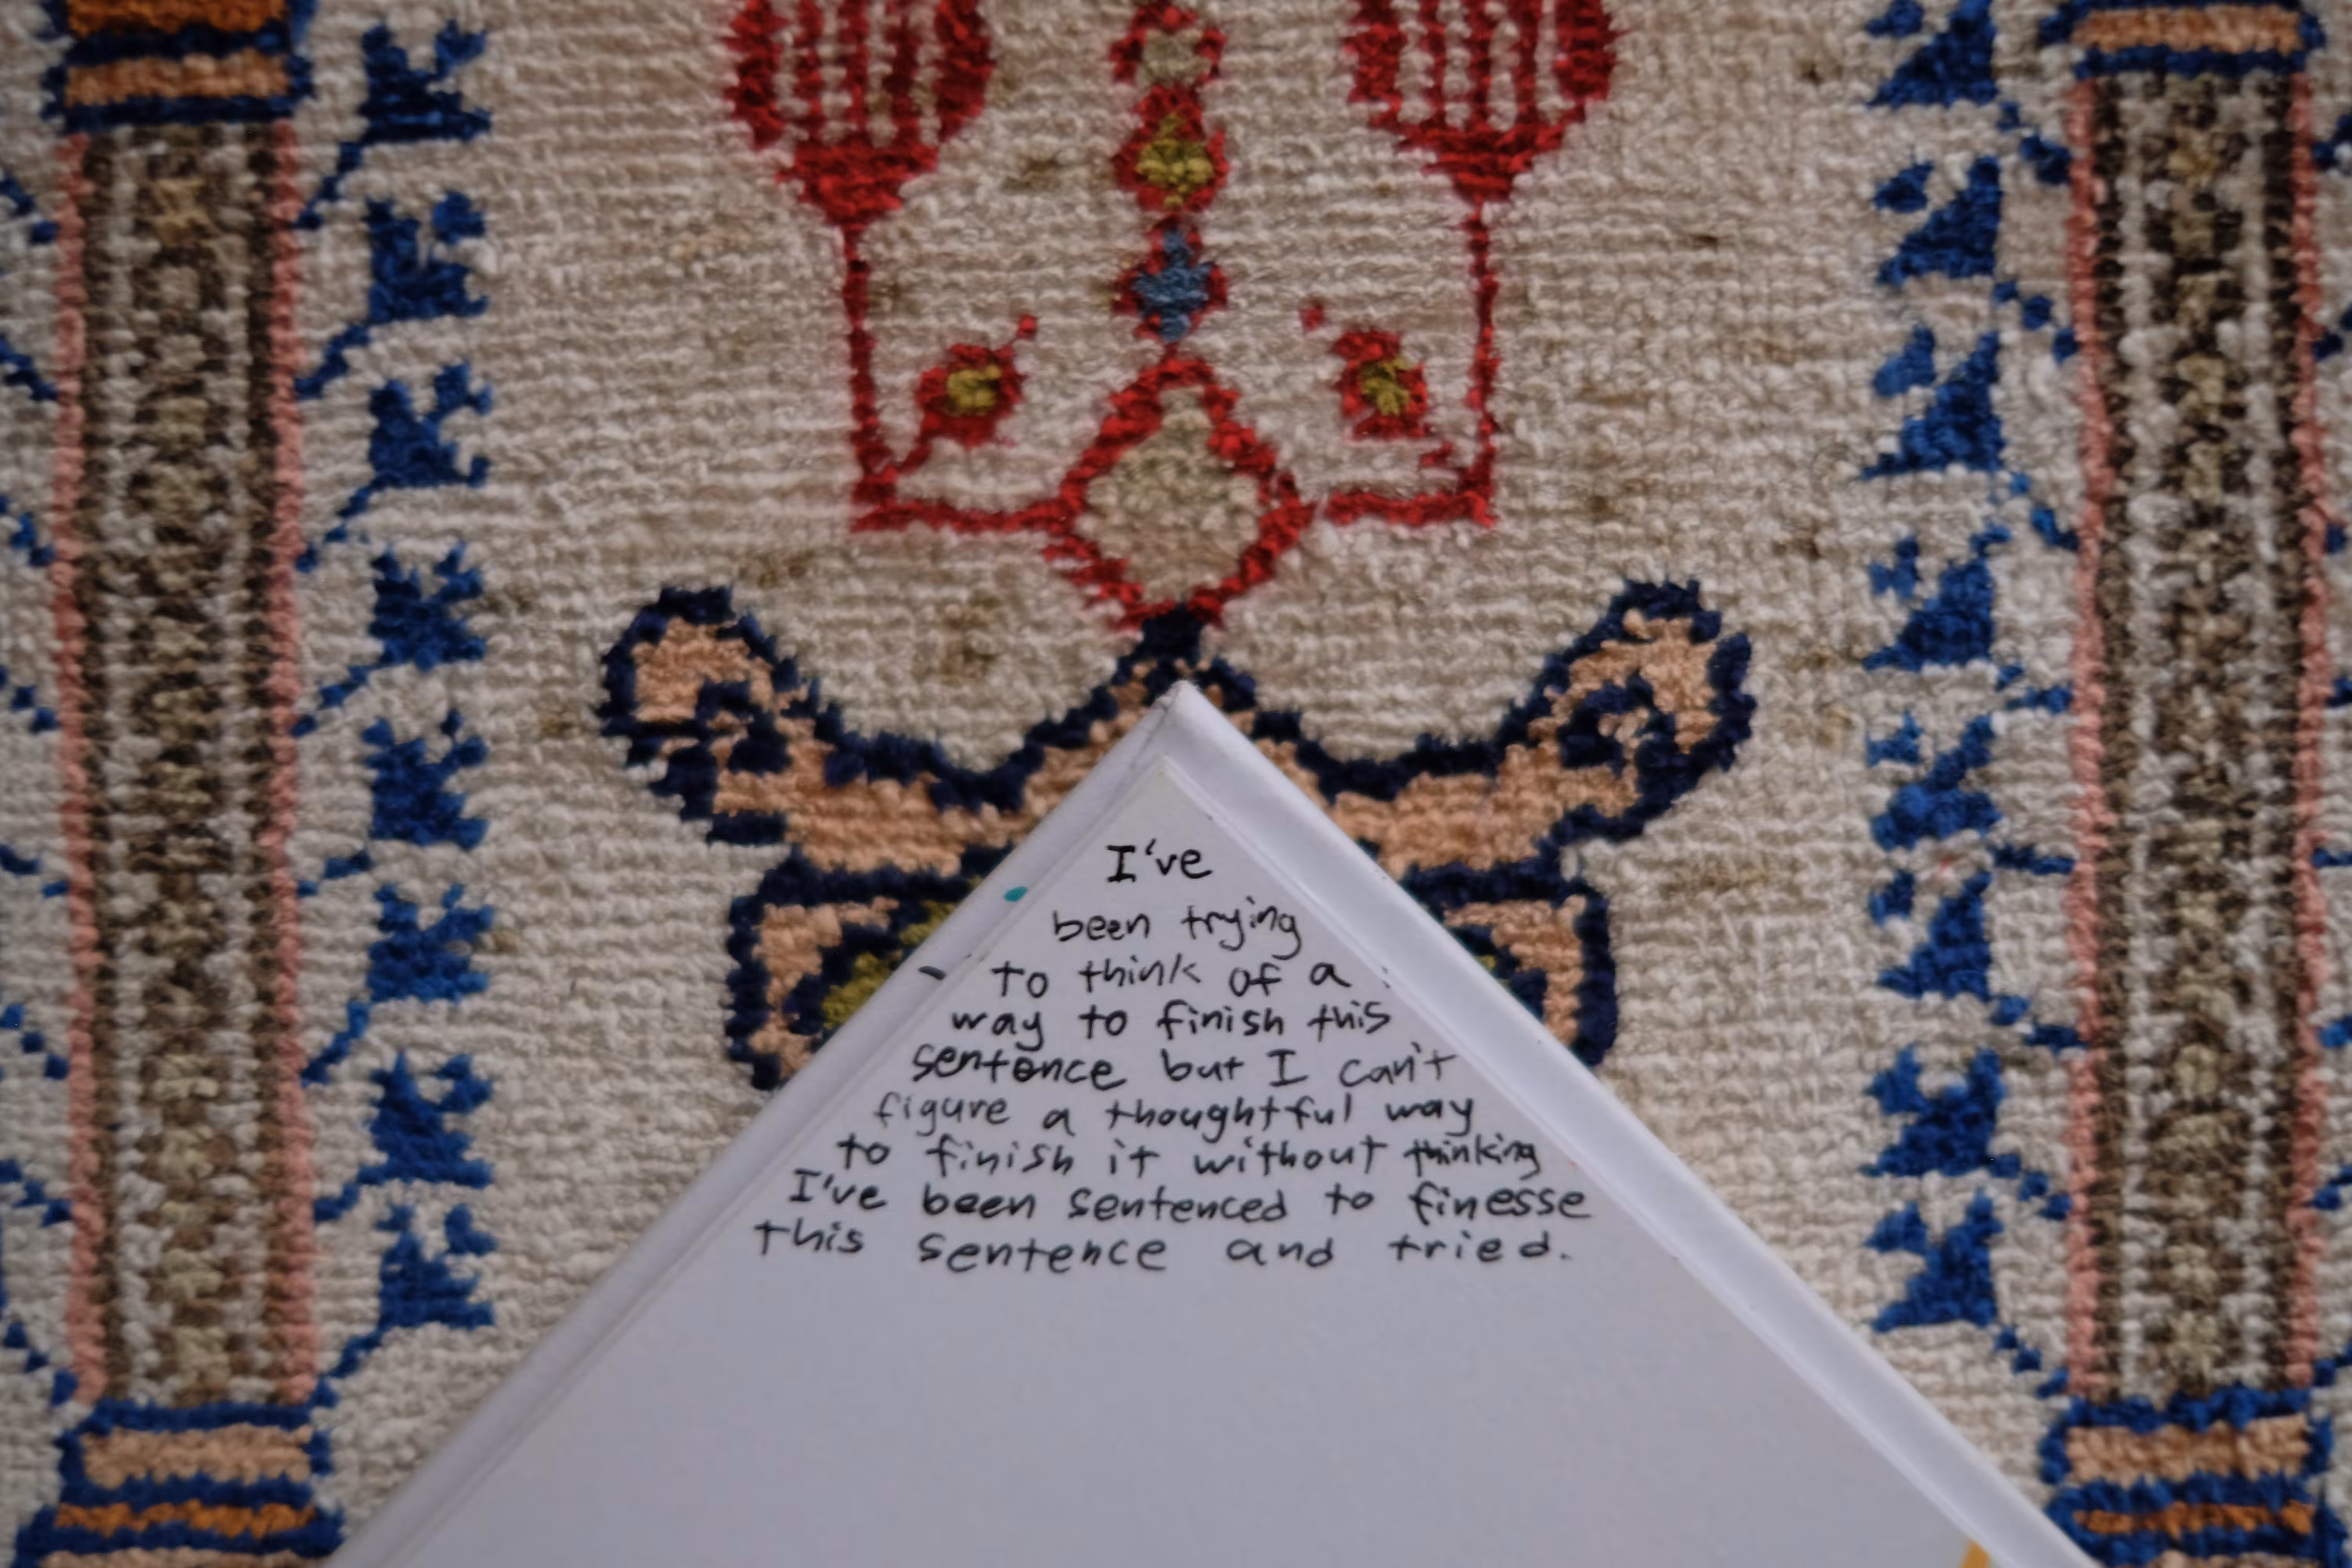 I've
been trying
to think of a
way to finish this
sentence but I can't
figure a thoughtful way
to finish it without thinking
I've been sentenced to finesse
this sentence and tried.